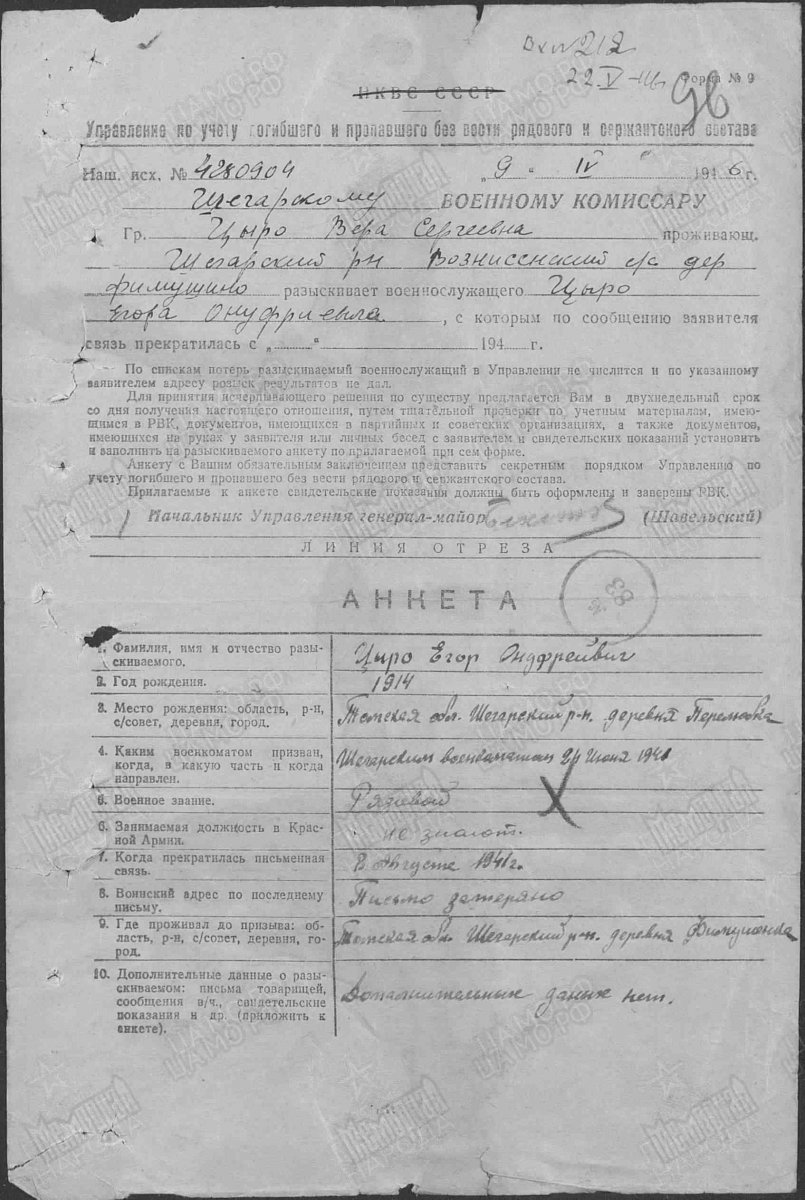 Вх № 212
22.V-46 Форма № 9
96
НКВС СССР
Управление по учету погибшего и пропавшего без вести рядового и сержантского состава
Наш. исх. № 4280904 „9 " IV 1946 г.
Шегарскому ВОЕННОМУ КОМИССАРУ
Гр. Цыро Вера Сергеевна проживающ.
Шегарский рн Вознисенский с/с дер
Фимушино разыскивает военнослужащего Цыро
Егора Онуфриевича, с которым по сообщению заявителя
связь прекратилась с „ " 194 г.
По спискам потерь разыскиваемый военнослужащий в Управлении не числится и по указанному
заявителем адресу розыск результатов не дал.
Для принятия исчерпывающего решения по существу предлагается Вам в двухнедельный срок
со дня получения настоящего отношения, путем тщательной проверки по учетным материалам, имею-
щимся в РВК, документов, имеющихся в партийных и советских организациях, а также документов,
имеющихся на руках у заявителя или личных бесед с заявителем и свидетельских показаний установить
и заполнить на разыскиваемого анкету по прилагаемой при сем форме.
Анкету с Вашим обязательным заключением представить секретным порядком Управлению по
учету погибшего и пропавшего без вести рядового и сержантского состава.
Прилагаемые к анкете свидетельские показания должны быть оформлены и заверены РВК.
Начальник Управления генерал-майор (Шавельский)
ЛИНИЯ ОТРЕЗА
АНКЕТА
1. Фамилия, имя и отчество разы- Цыро Егор Онуфрейвич
скиваемого.
2. Год рождения. 1914
3. Место рождения: область, р-н, Томская обл. Шегарский р-н. деревня
с/совет, деревня, город.
4. Каким военкоматом призван, Шегарским военкоматом 24 июня 1941
когда, в какую часть и когда
направлен.
5. Военное звание. Рядовой
6. Занимаемая должность в Крас- не знают.
ной Армии.
7. Когда прекратилась письменная В Августе 1941г.
связь.
8. Воинский адрес по последнему Письмо затеряно
письму.
9. Где проживал до призыва: об- Томская обл. Шегарский р-н. деревня Фимушенка
ласть, р-н, с/совет, деревня, го-
род.
10. Дополнительные данные о разы- Дополнительных даных нет.
скиваемом: письма товарищей,
сообщения в/ч., свидетельские
показания и др. (приложить к
анкете).